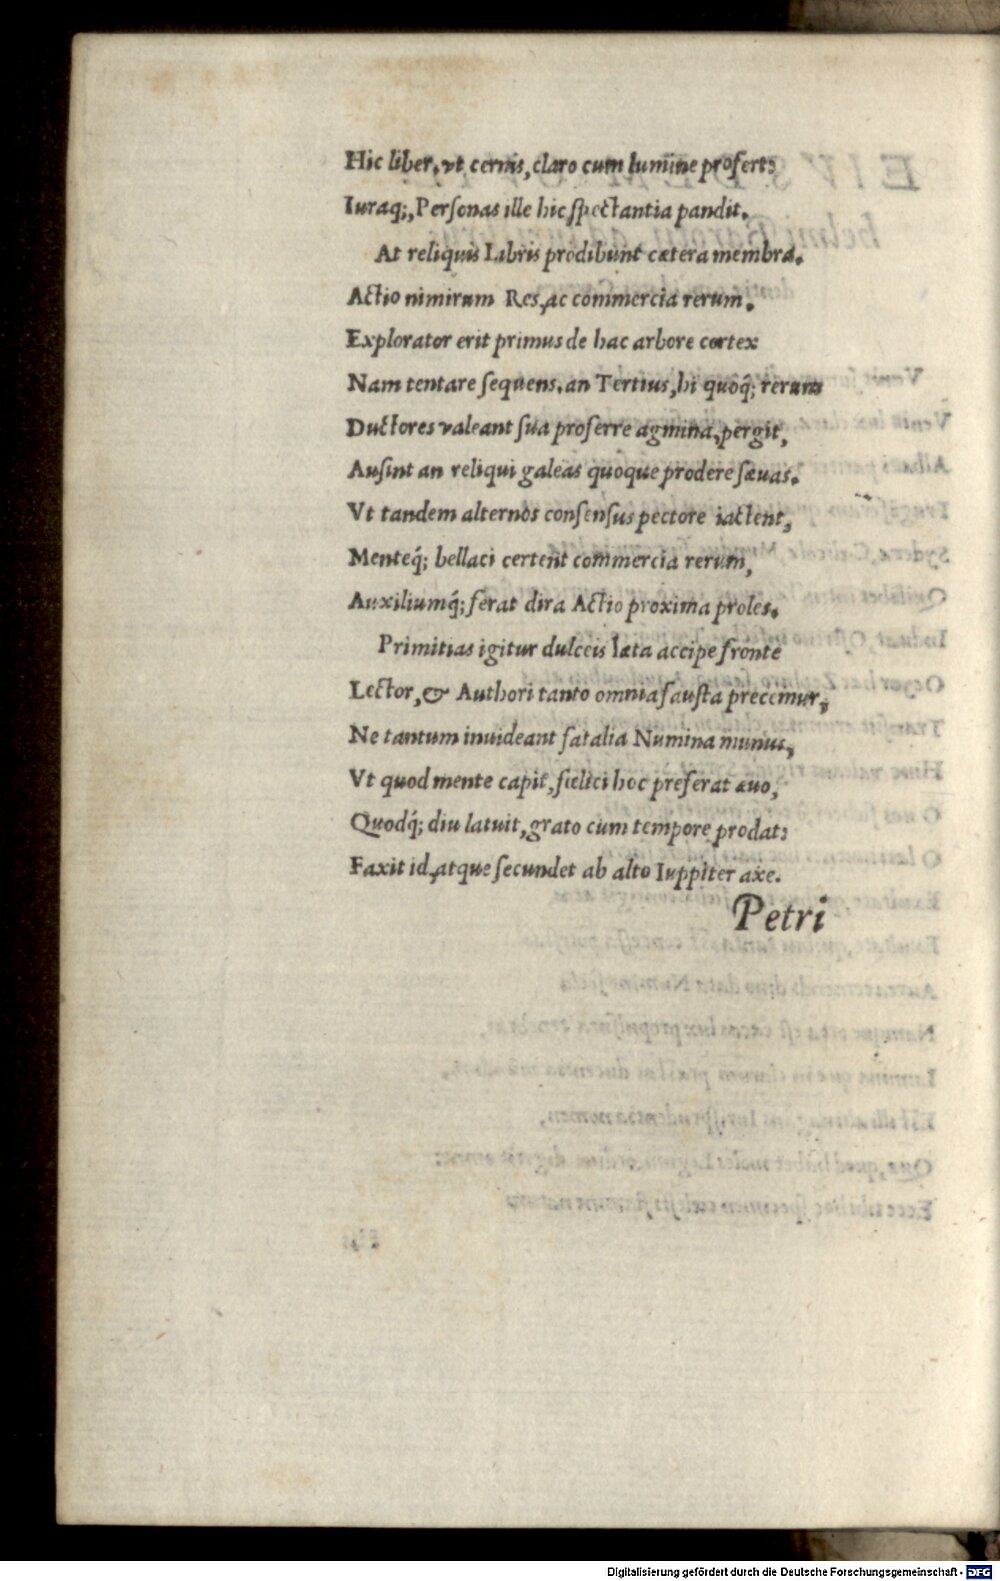 Hic liber, vt cernis, claro cum lumine profert:
Iuraq;, Personas ille hic spectantia pandit.
At reliquis Libris prodibunt cætera membra.
Actio nimirum Res, ac commercia rerum.
Explorator erit primus de hac arbore cortex
Nam tentare sequens, an Tertius, hi quoq́; rerum
Ductores valeant sua proferre agmina, pergit,
Ausint an reliqui galeas quoque prodere sæuas.
Vt tandem alternos consensus pectore iactent,
Menteq́; bellaci certent commercia rerum,
Auxiliumq́; ferat dira Actio proxima proles.
Primitias igitur dulceis læta accipe fronte
Lector, & Authori tanto omnia fausta precemur,
Ne tantum inuideant fatalia Numina munus,
Vt quod mente capit, fœlici hoc preferat æuo,
Quodq́; diu latuit, grato cum tempore prodat:
Faxit id, atque secundet ab alto Iuppiter axe.
Petri
Digitalisierung gefördert durch die Deutsche Forschungsgemeinschaft - DFG